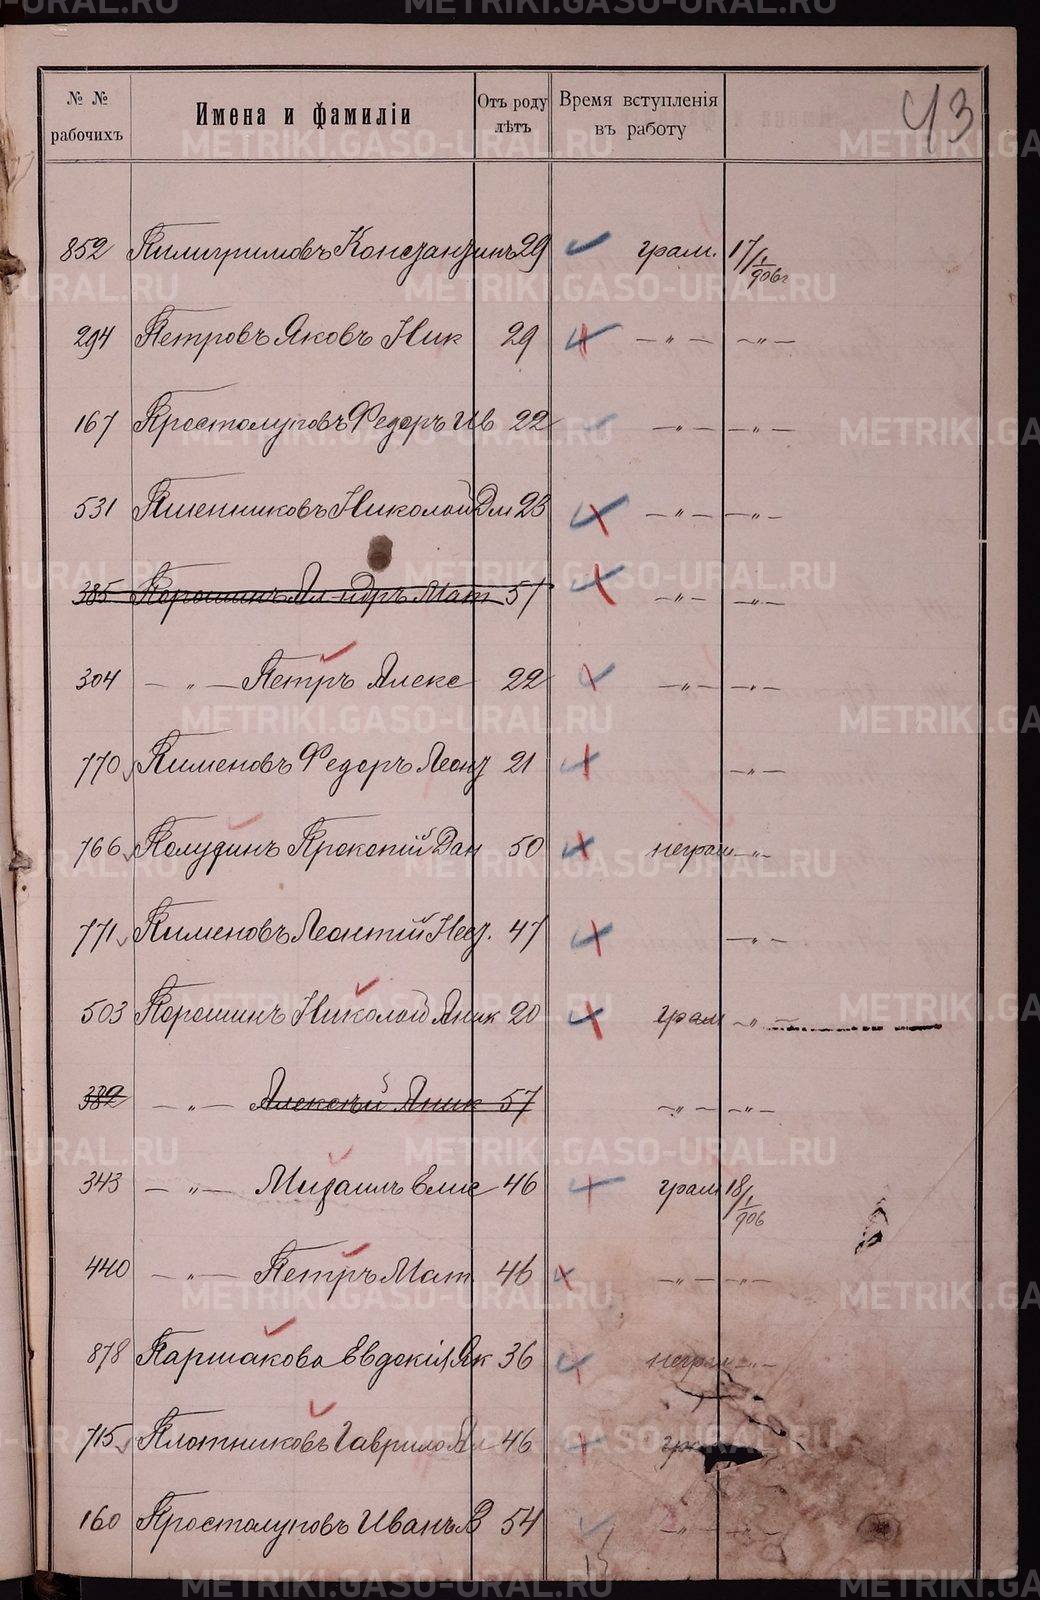 № № рабочихъ Имена и фамиліи Отъ роду лѣтъ Время вступленія въ работу 43
852 Пилигримовъ Константинъ 29 грам. 17/1 906 г
294 Петровъ Яковъ Ник 29 — " — — " —
167 Простолуповъ Федоръ Ив 22 — " — — " —
531 Пшенниковъ Николай Дм 23 — " — — " —
385 Порошинъ Ал-ндръ Мат 57 — " — — " —
304 — " — Петръ Алекс 22 — " — — " —
770 Пименовъ Федоръ Леонт 21 — " —
766 Полудинъ Прокопій Дан 50 неграм — " —
771 Пименовъ Леонтій 47 — " —
503 Порошинъ Николай Аник 20 грам — " —
382 — " — Алексѣй Аник 57 — " — — " —
343 — " — Михаилъ Елис 46 грам 18/1 906
440 — " — Петръ Мат 46 — " — — " —
878 Паршакова Евдокія Як 36 неграм — " —
715 Плотниковъ Гаврило Ал 46
160 Простолуповъ Иванъ 54 — " — — " —
METRIKI.GASO-URAL.RU